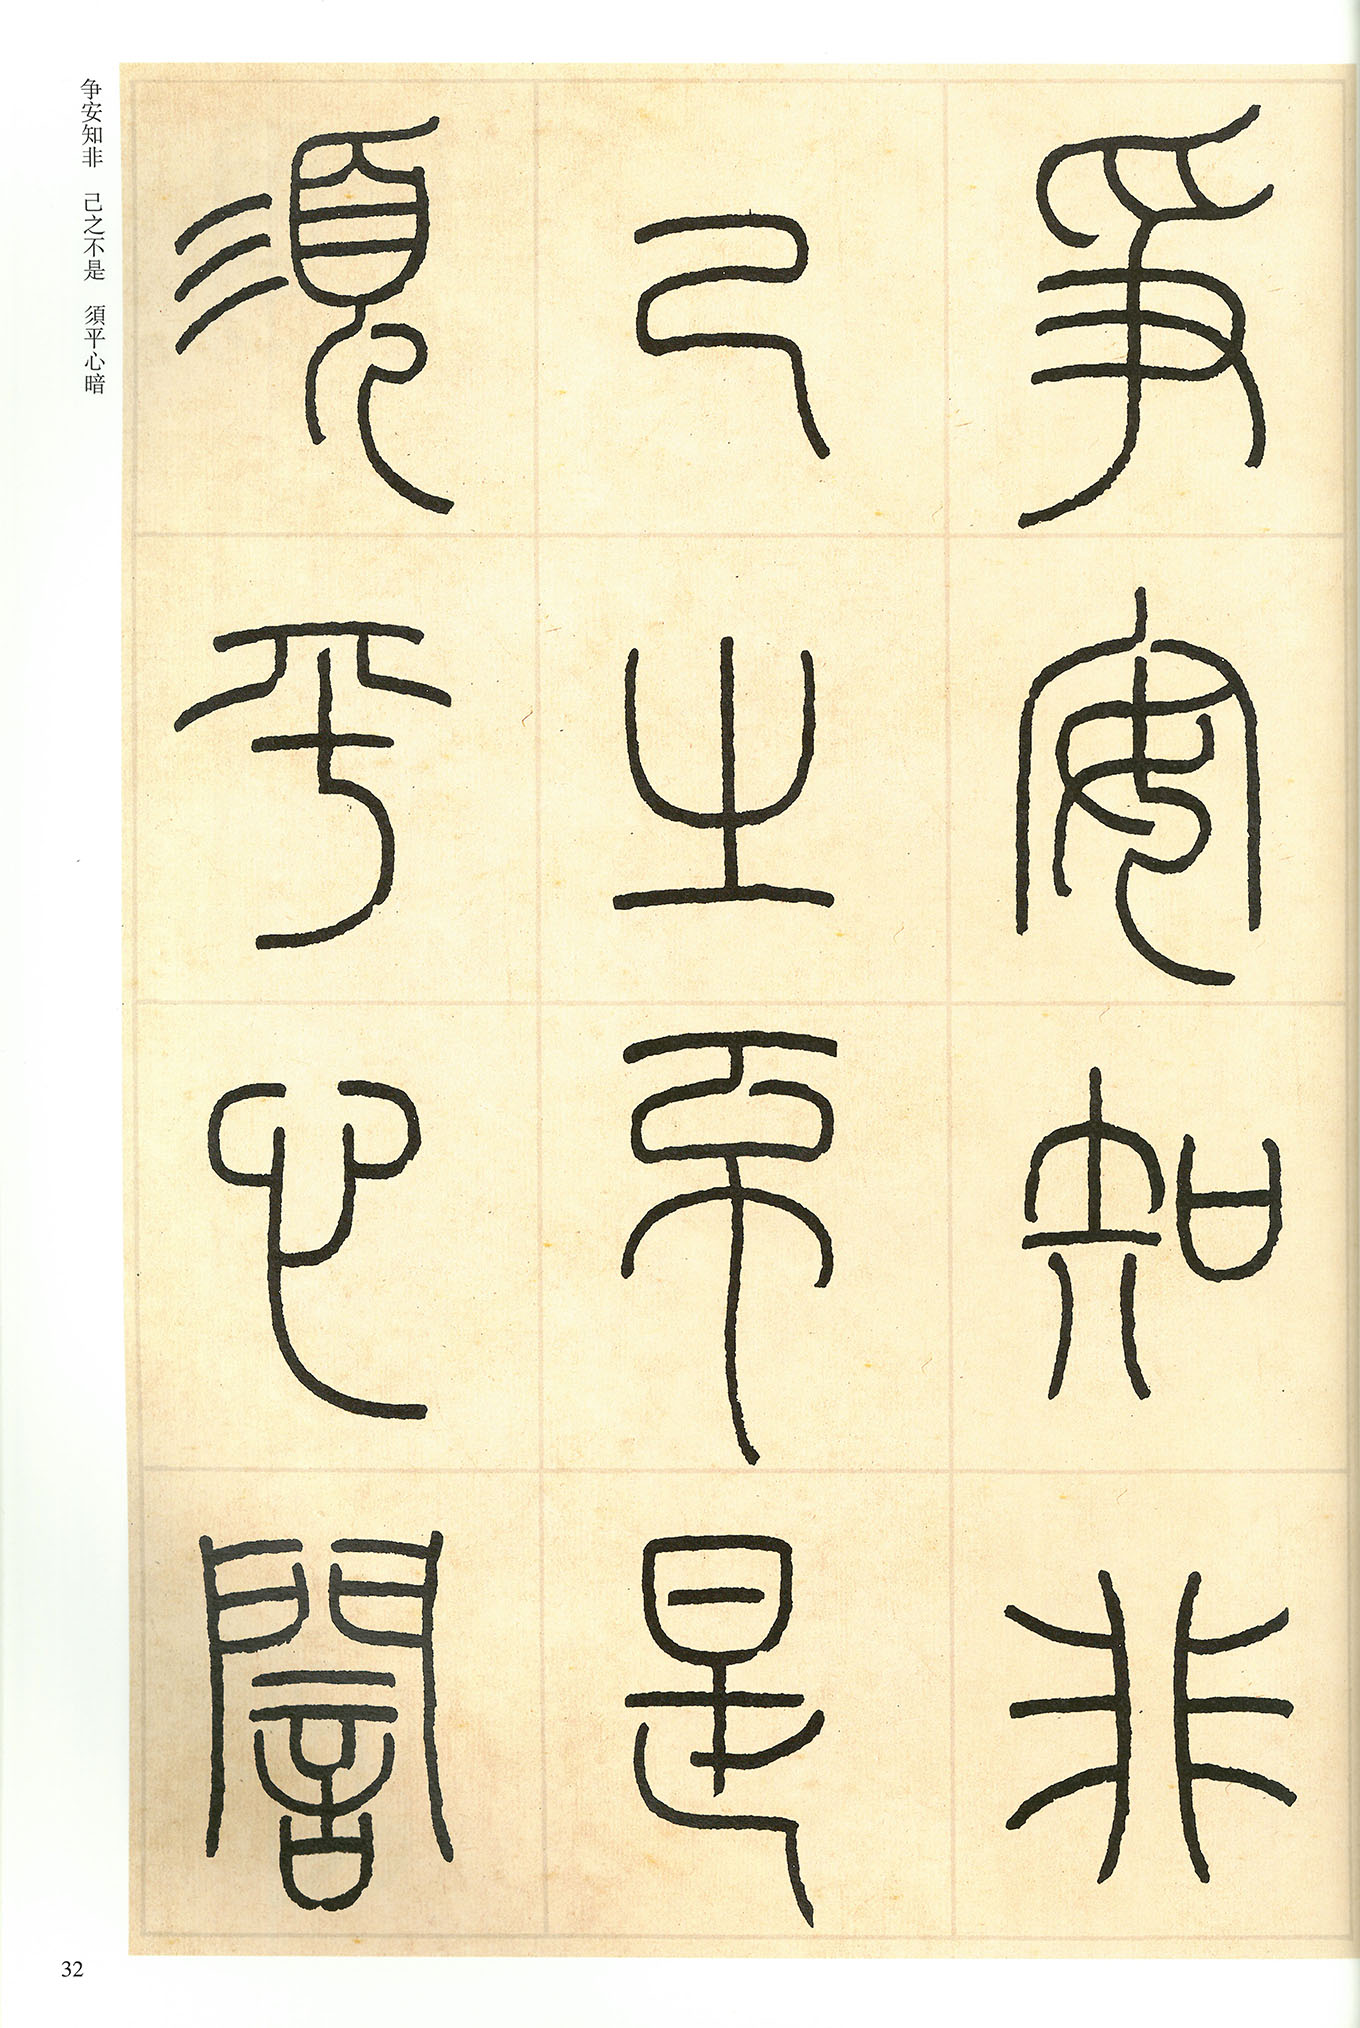 爭安知非
己之不是
須平心誾
争安知非　己之不是　須平心暗
32